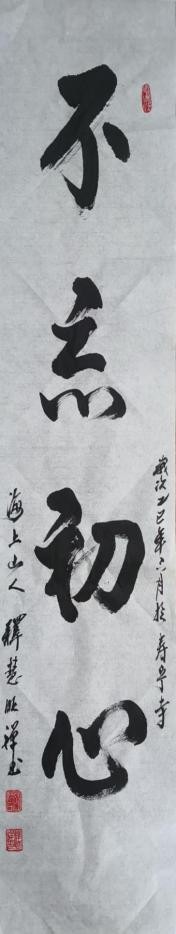 不忘初心
歲次乙巳年六月於壽寧寺
海上山人釋慧明禪書